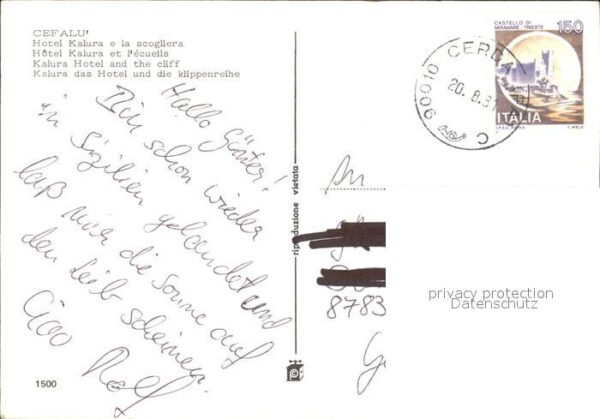 CEFALU'
Hotel Kalura e la scogliera
Hôtel Kalura et l'écueils
Kalura Hotel and the cliff
Kalura das Hotel und die klippenreihe
Hallo Günter!
Bin schon wieder
in Sizilien gelandet und
laß mir die Sonne auf
den Leib scheinen.
Ciao Rolf
1500
riproduzione vietata
An
8783
privacy protection
Datenschutz
90010 CERDA
20.8.81
CASTELLO DI
MIRAMARE - TRIESTE
150
ITALIA